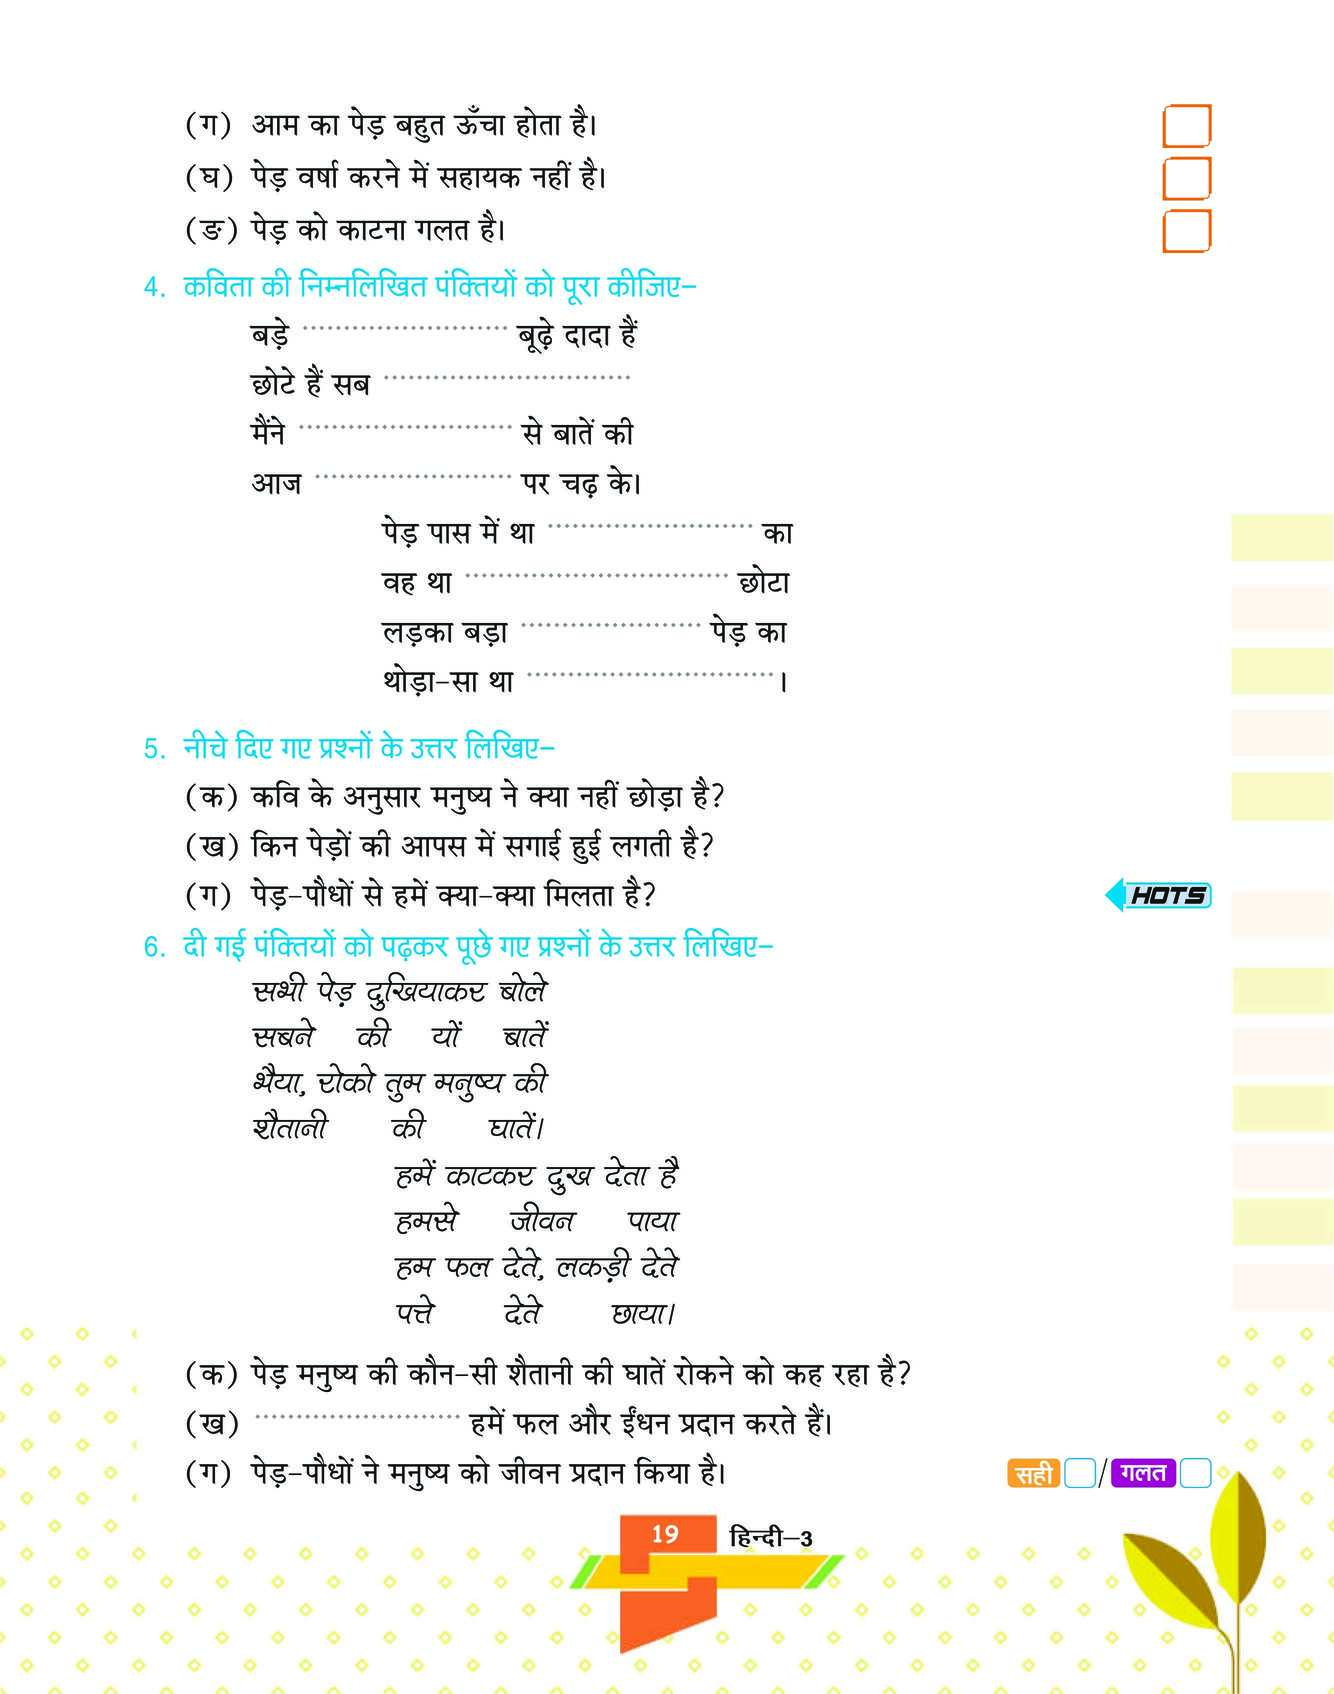 (ग) आम का पेड़ बहुत ऊँचा होता है।
(घ) पेड़ वर्षा करने में सहायक नहीं है।
(ङ) पेड़ को काटना गलत है।
4. कविता की निम्नलिखित पंक्तियों को पूरा कीजिए–
बड़े ......................... बूढ़े दादा हैं
छोटे हैं सब ..............................
मैंने .......................... से बातें की
आज ........................ पर चढ़ के।
पेड़ पास में था ......................... का
वह था ................................ छोटा
लड़का बड़ा ...................... पेड़ का
थोड़ा–सा था ..............................।
5. नीचे दिए गए प्रश्नों के उत्तर लिखिए–
(क) कवि के अनुसार मनुष्य ने क्या नहीं छोड़ा है?
(ख) किन पेड़ों की आपस में सगाई हुई लगती है?
(ग) पेड़–पौधों से हमें क्या–क्या मिलता है? HOTS
6. दी गई पंक्तियों को पढ़कर पूछे गए प्रश्नों के उत्तर लिखिए–
सभी पेड़ दुखियाकर बोले
सबने की यों बातें
भैया, रोको तुम मनुष्य की
शैतानी की घातें।
हमें काटकर दुख देता है
हमसे जीवन पाया
हम फल देते, लकड़ी देते
पत्ते देते छाया।
(क) पेड़ मनुष्य की कौन–सी शैतानी की घातें रोकने को कह रहा है?
(ख) ......................... हमें फल और ईंधन प्रदान करते हैं।
(ग) पेड़–पौधों ने मनुष्य को जीवन प्रदान किया है। सही / गलत
19 हिन्दी–3